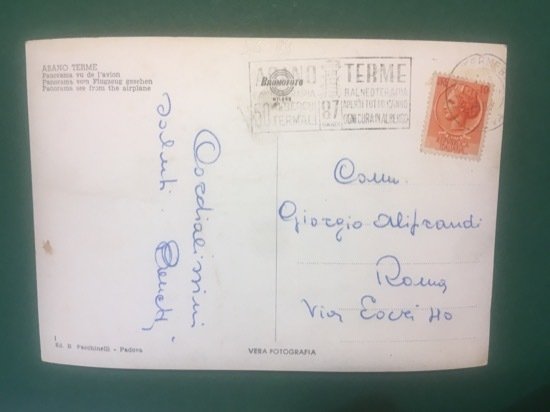 ABANO TERME
Panorama vu de l'avion
Panorama vom Flugzeug gesehen
Panorama see from the airplane
ABANO TERME
BROMOFOTO
MILANO
BALNEOTERAPIA
APERTI TUTTO L'ANNO
TERMALI
87
OGNI CURA IN ALBERGO
Cordialissimi
saluti
Comm.
Giorgio Alifrandi
Roma
Via
1
Ed. R. Facchinelli - Padova
VERA FOTOGRAFIA